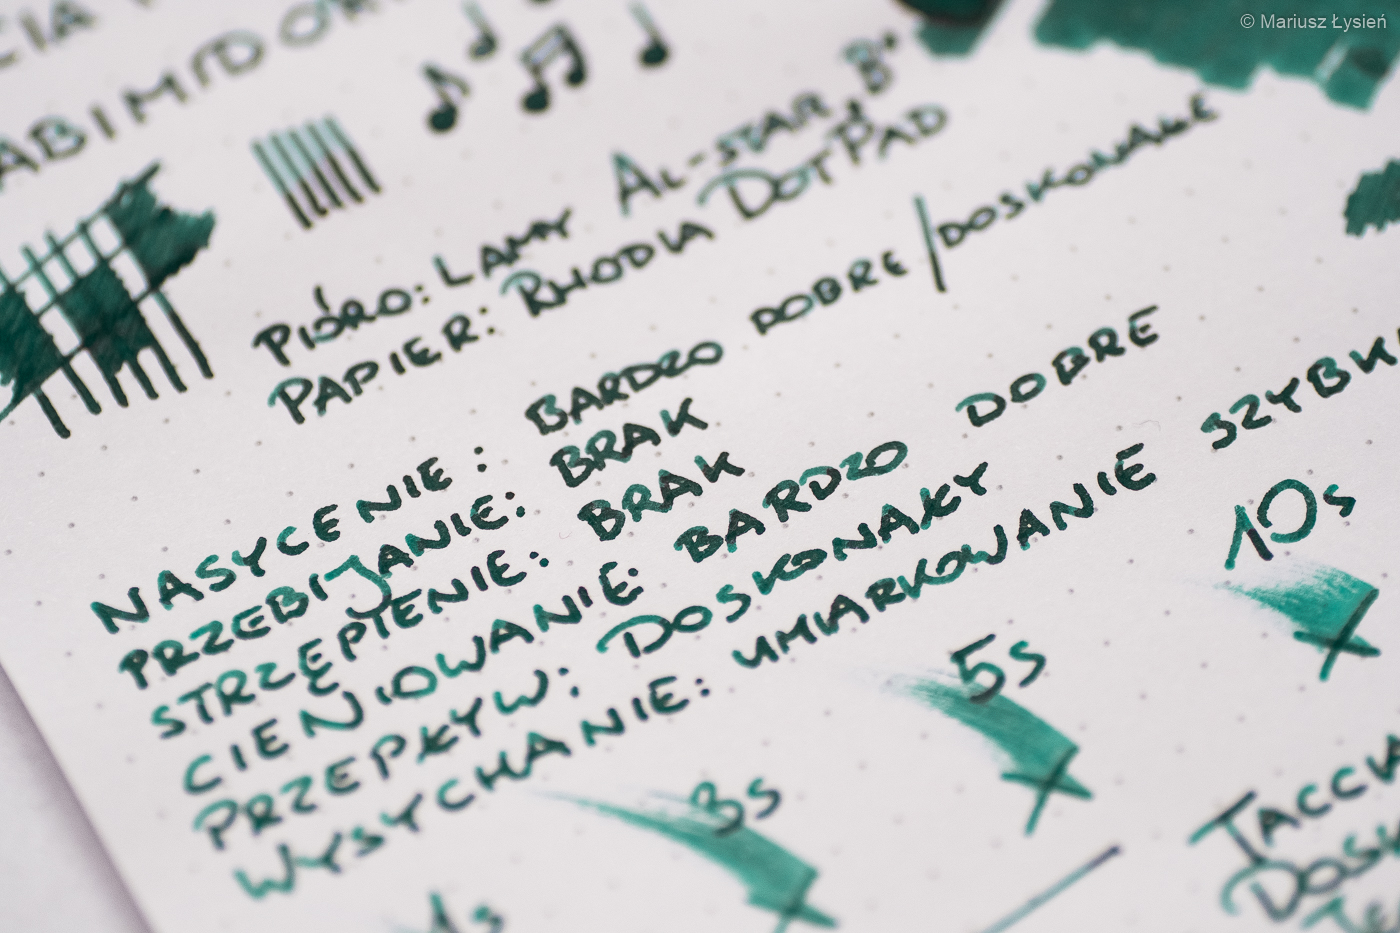 © Mariusz Łysień
CIA
ABIMIDO
PIÓRO: LAMY AL-STAR, B*
PAPIER: RHODIA DOTPAD
NASYCENIE: BARDZO DOBRE/DOSKONAŁE
PRZEBIJANIE: BRAK
STRZĘPIENIE: BRAK
CIENIOWANIE: BARDZO DOBRE
PRZEPŁYW: DOSKONAŁY
WYSYCHANIE: UMIARKOWANIE SZYBK
1s 3s 5s 10s
TACCI
DOSK